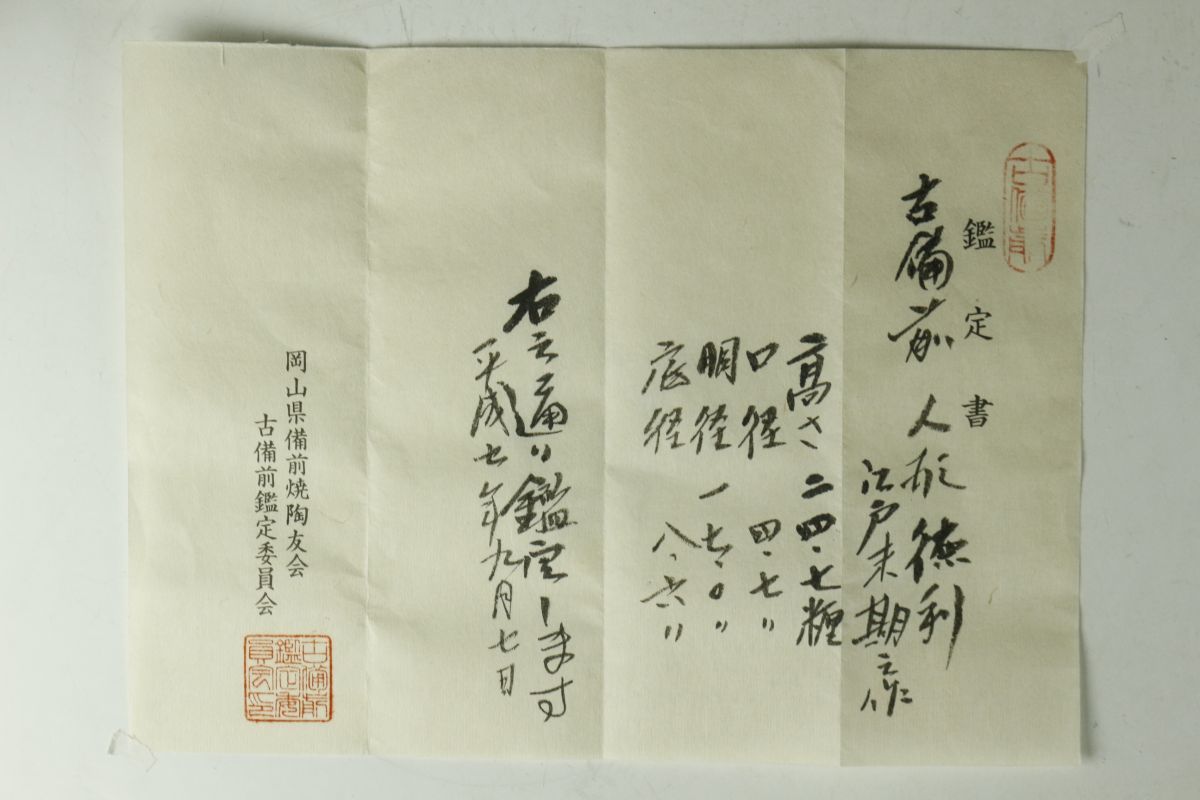 古備前
鑑定書
古備前 人形徳利
江戸末期之作
高さ 二四・七糎
口径 四・七〃
胴径 一七・〇〃
底径 八・六〃
右之通り鑑定します
平成七年九月七日
岡山県備前焼陶友会
古備前鑑定委員会
古備前
鑑定委
員会印